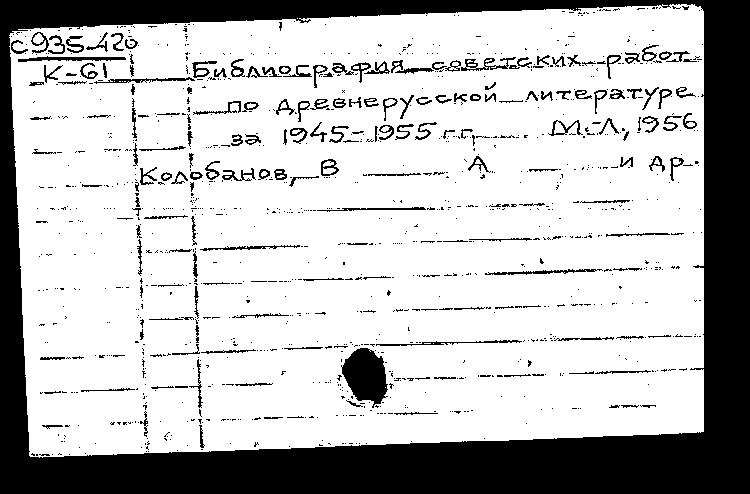 С935-420
К-61
Библиография советских работ
по древнерусской литературе
за 1945-1955 гг. М.-Л., 1956
Колобанов, В А и др.